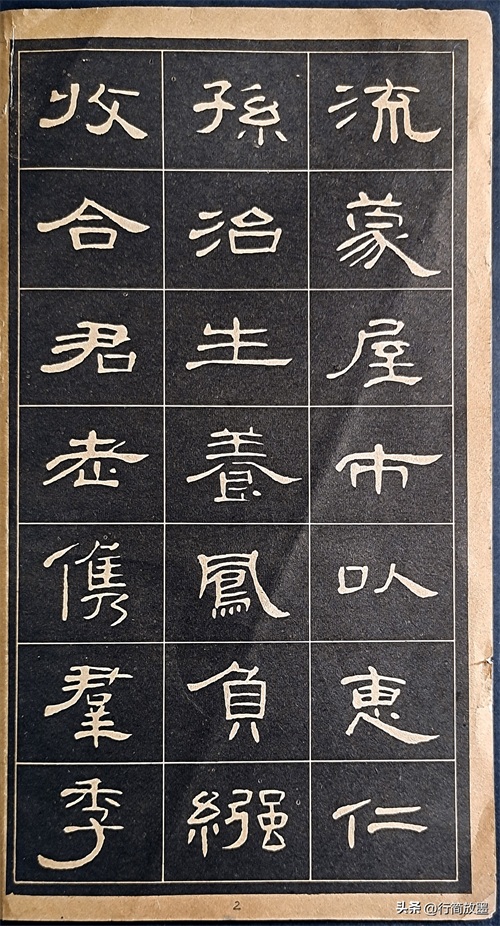 流蒙屋市以惠仁
孫治生養鳳負繈
收合君老儁羣季
2
头条 @行简放墨